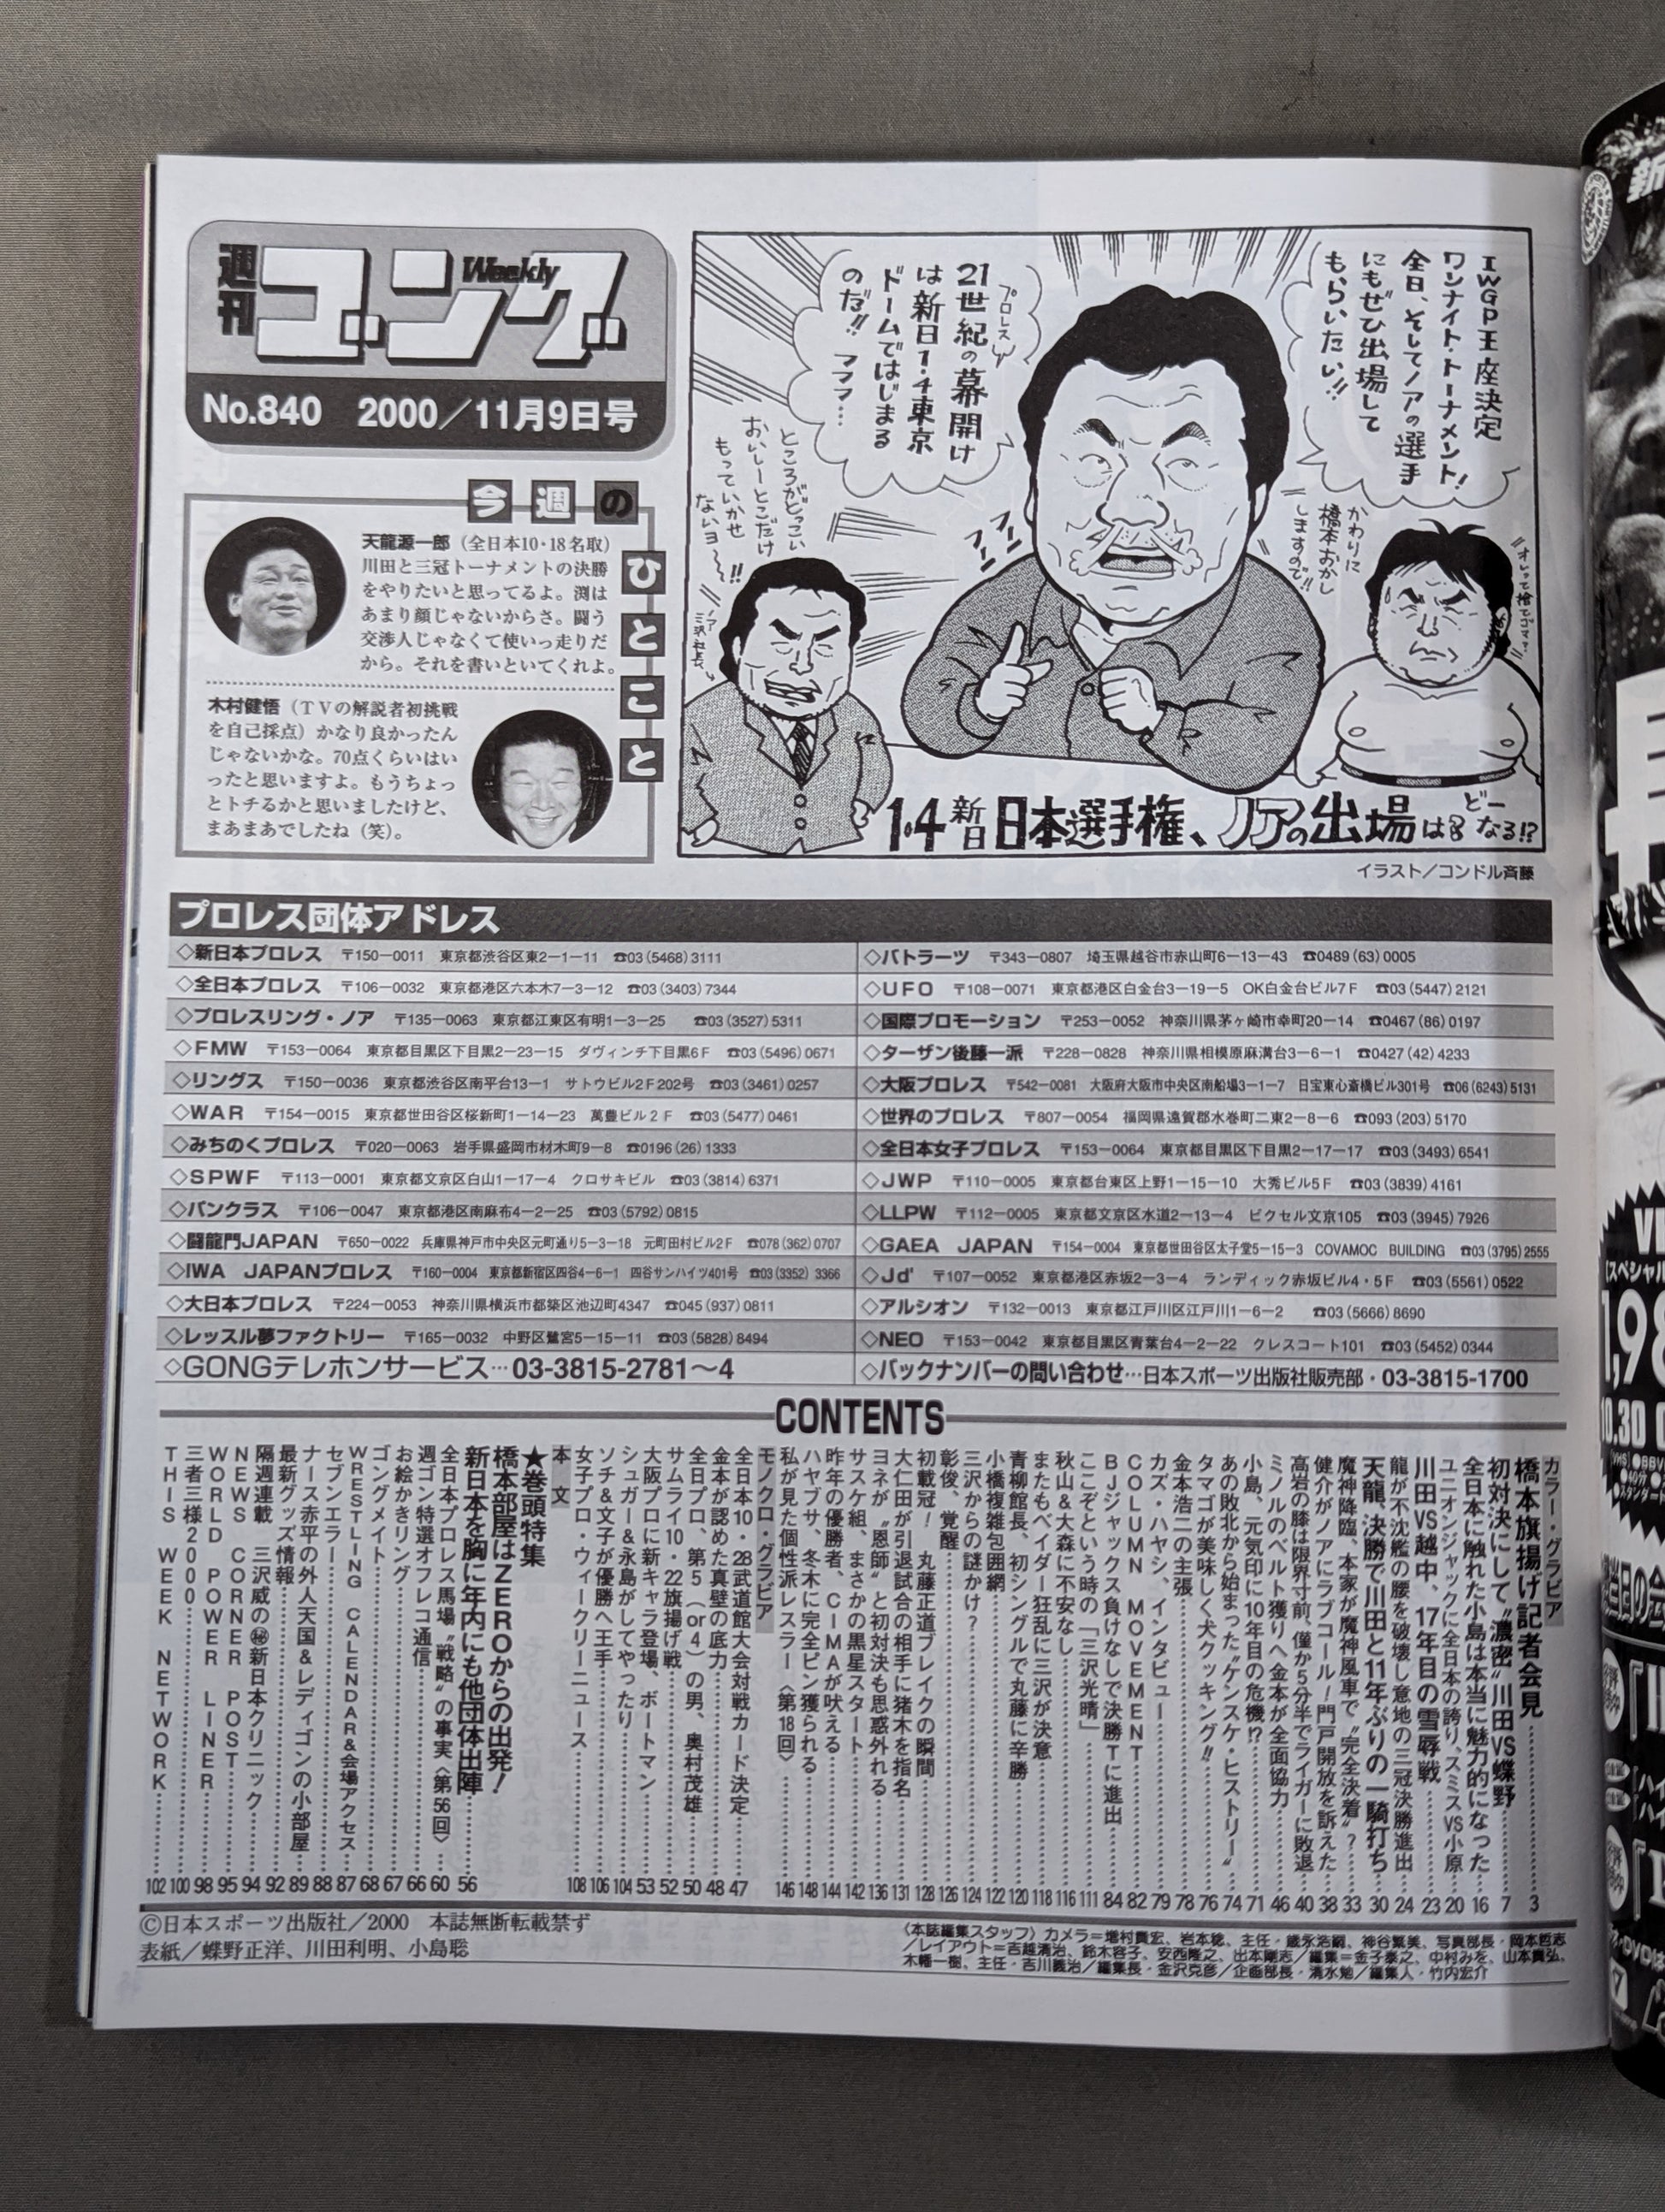 週刊
Weekly
ゴング
No.840 2000／11月9日号
今週のひとこと
天龍源一郎（全日本10・18名取）
川田と三冠トーナメントの決勝
をやりたいと思ってるよ。渕は
あまり顔じゃないからさ。闘う
交渉人じゃなくて使いっ走りだ
から。それを書いといてくれよ。
木村健悟（ＴＶの解説者初挑戦
を自己採点）かなり良かったん
じゃないかな。70点くらいはい
ったと思いますよ。もうちょっ
とトチるかと思いましたけど、
まあまあでしたね（笑）。
IWGP王座決定
ワンナイト・トーナメント!
全日、そしてノアの選手
にもぜひ出場して
もらいたい!!
プロレス
21世紀の幕開け
は新日1・4東京
ドームではじまる
のだ!! フフフ…
かわりに
橋本おかし
しますので!!
ところがどっこい
おいしーとこだけ
もっていかせ
ないヨ〜!!
ノア
三沢社長
1・4新日日本選手権、ノアの出場はどーなる!?
イラスト／コンドル斉藤
プロレス団体アドレス
◇新日本プロレス 〒150－0011 東京都渋谷区東2－1－11 ☎03(5468)3111
◇全日本プロレス 〒106－0032 東京都港区六本木7－3－12 ☎03(3403)7344
◇プロレスリング・ノア 〒135－0063 東京都江東区有明1－3－25 ☎03(3527)5311
◇ＦＭＷ 〒153－0064 東京都目黒区下目黒2－23－15 ダヴィンチ下目黒6Ｆ ☎03(5496)0671
◇リングス 〒150－0036 東京都渋谷区南平台13－1 サトウビル2Ｆ202号 ☎03(3461)0257
◇ＷＡＲ 〒154－0015 東京都世田谷区桜新町1－14－23 萬豊ビル２Ｆ ☎03(5477)0461
◇みちのくプロレス 〒020－0063 岩手県盛岡市材木町9－8 ☎0196(26)1333
◇ＳＰＷＦ 〒113－0001 東京都文京区白山1－17－4 クロサキビル ☎03(3814)6371
◇パンクラス 〒106－0047 東京都港区南麻布4－2－25 ☎03(5792)0815
◇闘龍門JAPAN 〒650－0022 兵庫県神戸市中央区元町通り5－3－18 元町田村ビル2Ｆ ☎078(362)0707
◇IWA JAPANプロレス 〒160－0004 東京都新宿区四谷4－6－1 四谷サンハイツ401号 ☎03(3352)3366
◇大日本プロレス 〒224－0053 神奈川県横浜市都築区池辺町4347 ☎045(937)0811
◇レッスル夢ファクトリー 〒165－0032 中野区鷺宮5－15－11 ☎03(5828)8494
◇GONGテレホンサービス…03-3815-2781〜4
◇バトラーツ 〒343－0807 埼玉県越谷市赤山町6－13－43 ☎0489(63)0005
◇ＵＦＯ 〒108－0071 東京都港区白金台3－19－5 OK白金台ビル7Ｆ ☎03(5447)2121
◇国際プロモーション 〒253－0052 神奈川県茅ヶ崎市幸町20－14 ☎0467(86)0197
◇ターザン後藤一派 〒228－0828 神奈川県相模原麻溝台3－6－1 ☎0427(42)4233
◇大阪プロレス 〒542－0081 大阪府大阪市中央区南船場3－1－7 日宝東心斎橋ビル301号 ☎06(6243)5131
◇世界のプロレス 〒807－0054 福岡県遠賀郡水巻町二東2－8－6 ☎093(203)5170
◇全日本女子プロレス 〒153－0064 東京都目黒区下目黒2－17－17 ☎03(3493)6541
◇JWP 〒110－0005 東京都台東区上野1－15－10 大秀ビル5Ｆ ☎03(3839)4161
◇LLPW 〒112－0005 東京都文京区水道2－13－4 ビクセル文京105 ☎03(3945)7926
◇GAEA JAPAN 〒154－0004 東京都世田谷区太子堂5－15－3 COVAMOC BUILDING ☎03(3795)2555
◇Jd' 〒107－0052 東京都港区赤坂2－3－4 ランディック赤坂ビル4・5Ｆ ☎03(5561)0522
◇アルシオン 〒132－0013 東京都江戸川区江戸川1－6－2 ☎03(5666)8690
◇NEO 〒153－0042 東京都目黒区青葉台4－2－22 クレスコート101 ☎03(5452)0344
◇バックナンバーの問い合わせ…日本スポーツ出版社販売部・03-3815-1700
CONTENTS
カラー・グラビア
橋本旗揚げ記者会見……3
初対決にして〝濃密〟川田VS蝶野……7
全日本に触れた小島は本当に魅力的になった……16
ユニオンジャックに全日本の誇り、スミスVS小原……20
川田VS越中、17年目の雪辱戦……23
龍が不沈艦の腰を破壊し意地の三冠決勝進出……24
天龍、決勝で川田と11年ぶりの一騎打ち……30
魔神降臨、本家が魔神風車で〝完全決着〟?……33
健介がノアにラブコール!門戸開放を訴えた……38
高岩の膝は限界寸前、僅か5分半でライガーに敗退……40
ミノルのベルト獲りへ金本が全面協力……46
小島、元気印に10年目の危機!?……71
あの敗北から始まった〝ケンスケ・ヒストリー〟……74
タマゴが美味しく犬クッキング!!……76
金本浩二の主張……78
カズ・ハヤシ、インタビュー……79
COLUMN MOVEMENT……82
BJジャックス負けなしで決勝Tに進出……84
ここぞという時の「三沢光晴」……111
秋山&大森に不安なし……116
またもベイダー狂乱に三沢が決意……118
青柳館長、初シングルで丸藤に辛勝……120
小橋複雑包囲網……122
三沢からの謎かけ?……124
彰俊、覚醒……126
初載冠! 丸藤正道ブレイクの瞬間……128
大仁田が引退試合の相手に猪木を指名……131
ヨネが〝恩師〟と初対決も思惑外れる……136
サスケ組、まさかの黒星スタート……142
昨年の優勝者、CIMAが吠える……144
ハヤブサ、冬木に完全ピン獲られる……148
私が見た個性派レスラー〈第18回〉……146
モノクロ・グラビア
全日本10・28武道館大会対戦カード決定……47
金本が認めた真壁の底力……48
全日プロ、第5（or4）の男、奥村茂雄……50
サムライ10・22旗揚げ戦……52
大阪プロに新キャラ登場、ボートマン……53
シュガー&永島がしてやったり……104
ソチ&文子が優勝へ王手……106
女子プロ・ウィークリーニュース……108
本文
★巻頭特集
橋本部屋はZEROからの出発!
新日本を胸に年内にも他団体出陣……56
全日本プロレス馬場〝戦略〟の事実〈第56回〉……60
週ゴン特選オフレコ通信……66
お絵かきリング……67
ゴングメイト……68
WRESTLING CALENDAR&会場アクセス……87
セブンエラー……88
ナース赤平の外人天国&レディゴンの小部屋……89
最新グッズ情報……92
隔週連載 三沢威の㊙新日本クリニック……94
NEWS CORNER POST……95
WORLD POWER LINER……98
三者三様2000……100
THIS WEEK NETWORK……102
©日本スポーツ出版社／2000 本誌無断転載禁ず
表紙／蝶野正洋、川田利明、小島聡
〈本誌編集スタッフ〉カメラ＝増村貴宏、岩本稔、主任・歳永浩嗣、神谷繁美、写真部長・岡本哲志
／レイアウト＝吉越清治、鈴木容子、安西隆之、出本剛志／編集＝金子泰之、中村みを、山本貴弘、
木幡一樹、主任・吉川義治／編集長・金沢克彦／企画部長・清水勉／編集人・竹内宏介